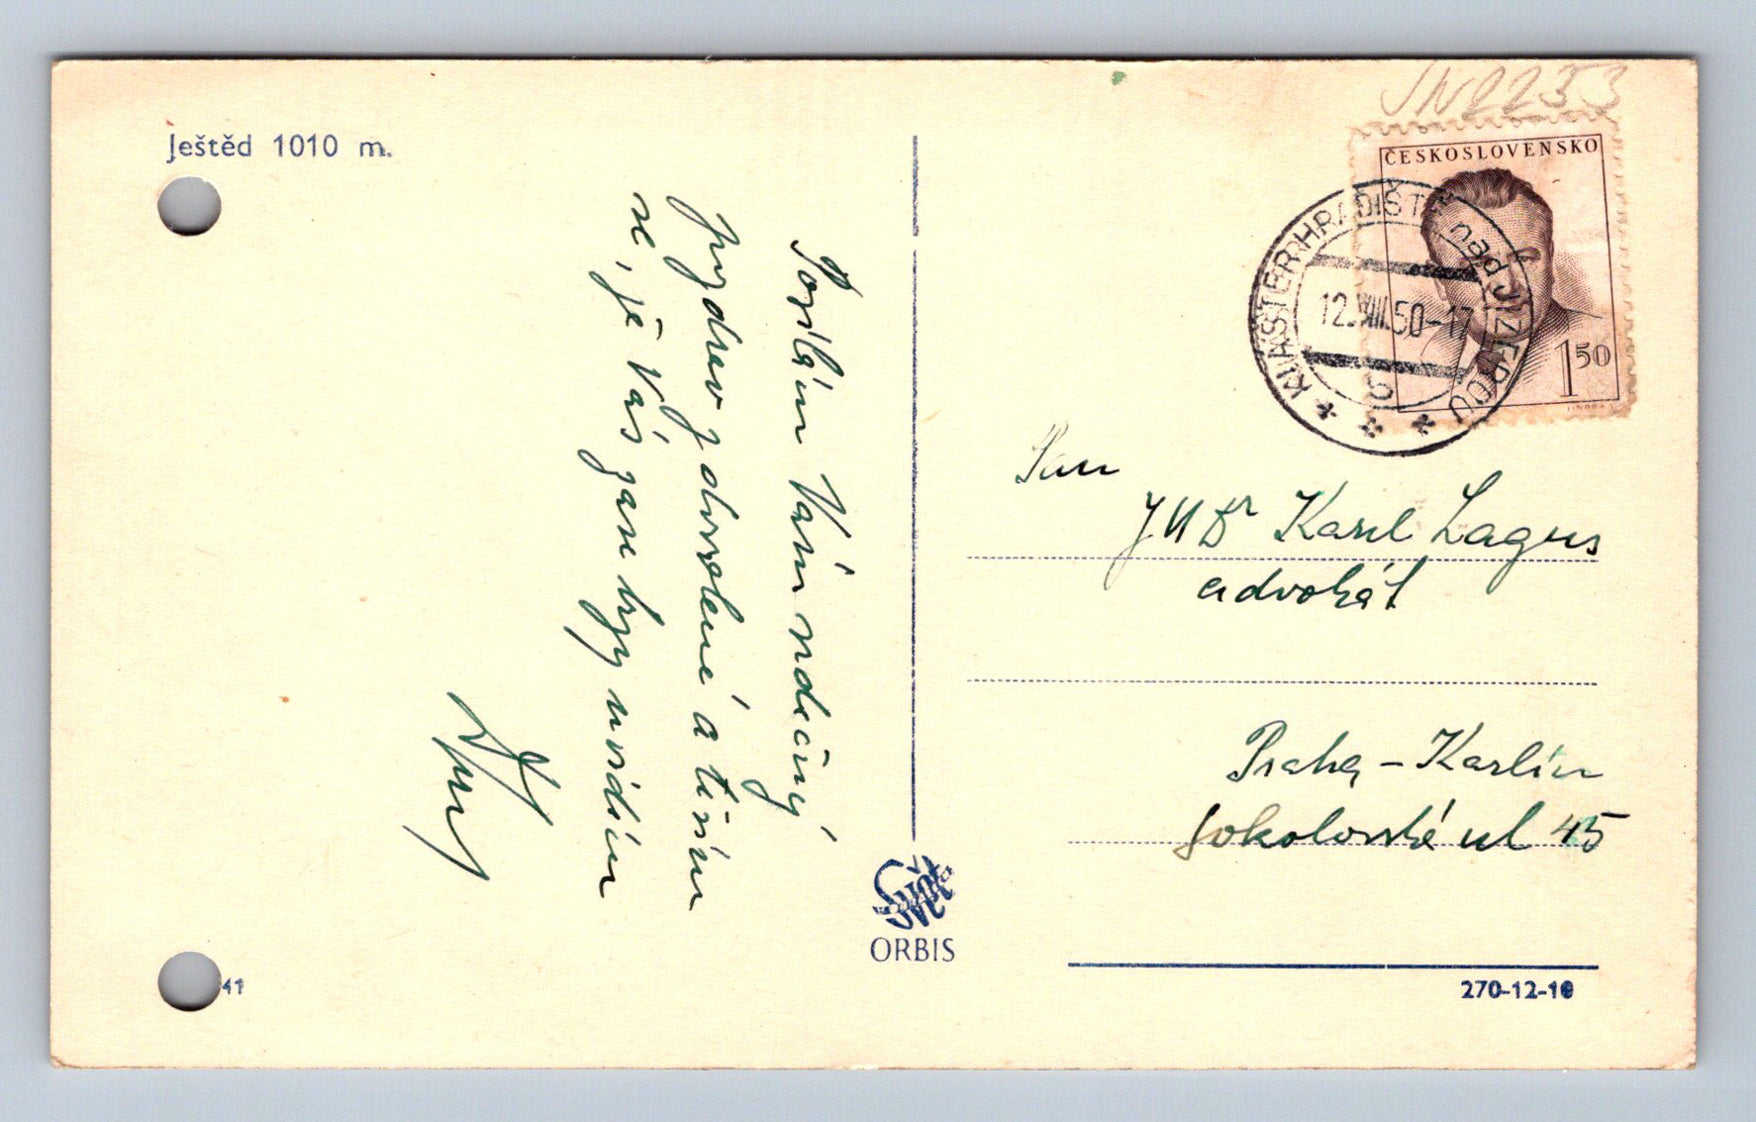 Ještěd 1010 m.
Posílám Vám srdečný
pozdrav z dovolené a těším
se, že Vás zase brzy uvidím
JN2253
ČESKOSLOVENSKO
1 50
KLÁŠTER HRADIŠTĚ nad JIZEROU
12.VIII.50-17
b
Pan
JUDr Karel Lagus
advokát
Praha - Karlín
Sokolovská ul 45
ORBIS
41
270-12-10